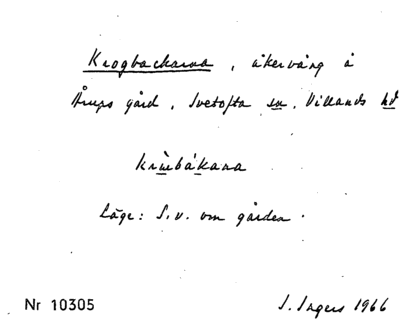 Krogbackarna, åkervång å
Årups gård, Ivetofta sn, Villands hd
krɯ̀bákana
Läge: S.v. om gården.
Nr 10305
I. Ingers 1966